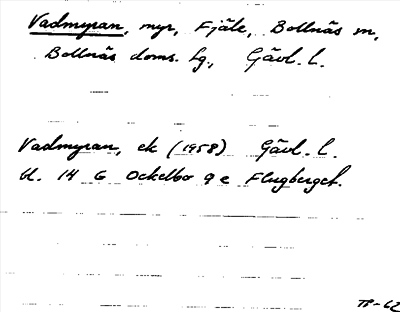 Vadmyran, myr, Fjäle, Bollnäs sn,
Bollnäs doms. hg., Gävl. l.
Vadmyran, ek (1958) Gävl. l.
bl. 14 G Ockelbo 9 e Flugberget.
TB-62